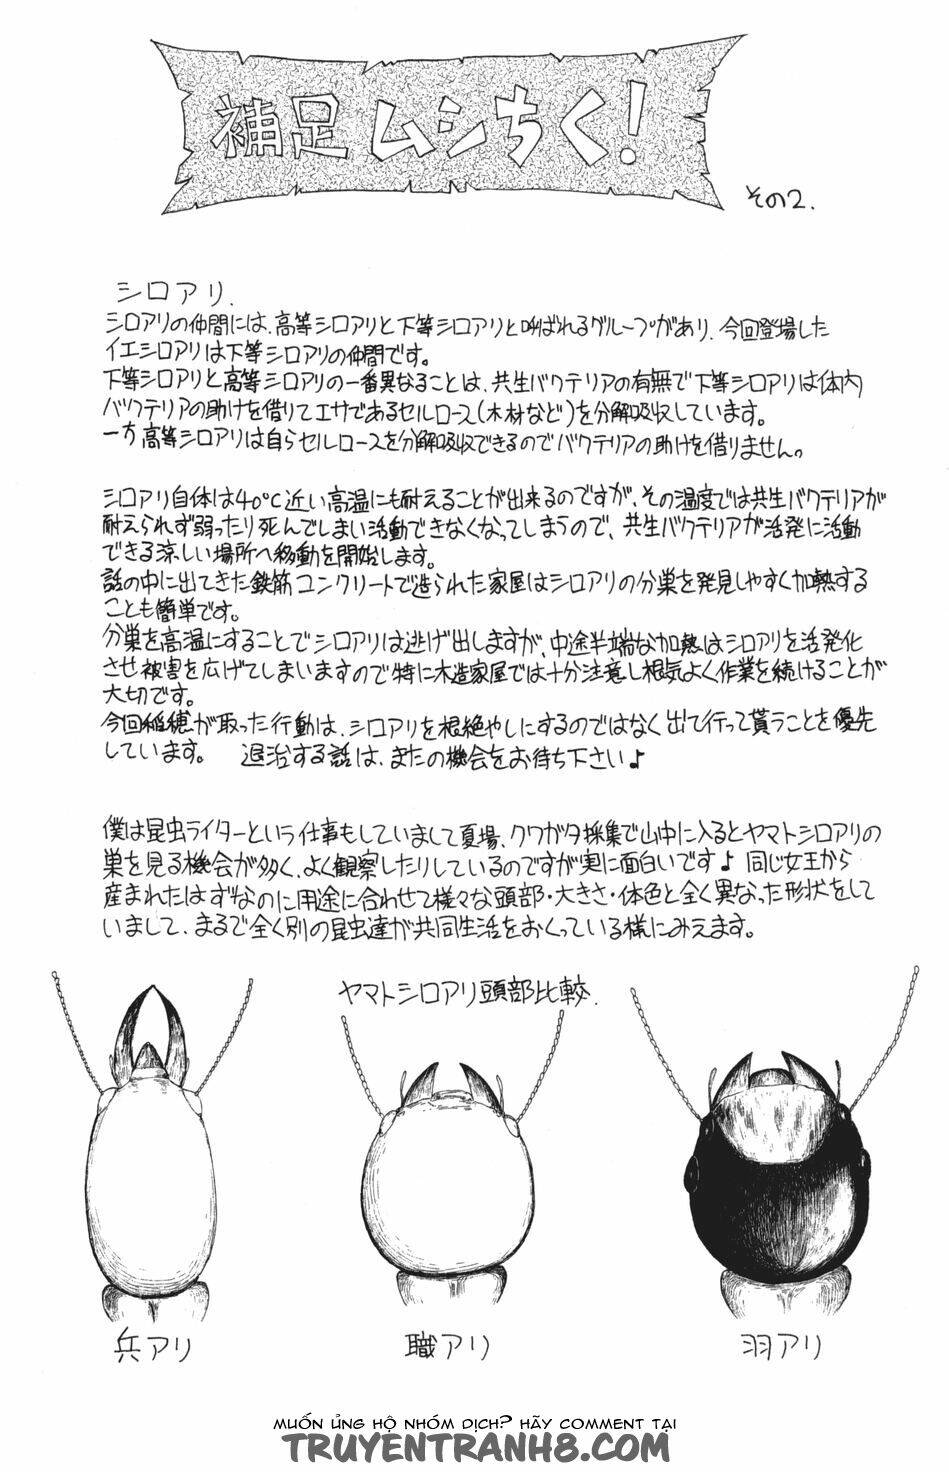 補足 ムシちく!
その2.
シロアリ.
シロアリの仲間には、高等シロアリと下等シロアリと呼ばれるグループがあり、今回登場した
イエシロアリは下等シロアリの仲間です。
下等シロアリと高等シロアリの一番異なることは、共生バクテリアの有無で下等シロアリは体内
バクテリアの助けを借りてエサであるセルロース(木材など)を分解吸収しています。
一方高等シロアリは自らセルロースを分解吸収できるのでバクテリアの助けを借りません。
シロアリ自体は40℃近い高温にも耐えることが出来るのですが、その温度では共生バクテリアが
耐えられず弱ったり死んでしまい活動できなくなってしまうので、共生バクテリアが活発に活動
できる涼しい場所へ移動を開始します。
話の中に出てきた鉄筋コンクリートで造られた家屋はシロアリの分巣を発見しやすく加熱する
ことも簡単です。
分巣を高温にすることでシロアリは逃げ出しますが、中途半端な加熱はシロアリを活発化
させ被害を広げてしまいますので特に木造家屋では十分注意し根気よく作業を続けることが
大切です。
今回稲穂が取った行動は、シロアリを根絶やしにするのではなく出て行って貰うことを優先
しています。 退治する話は、またの機会をお待ち下さい♪
僕は昆虫ライターという仕事もしていまして夏場、クワガタ採集で山中に入るとヤマトシロアリの
巣を見る機会が多く、よく観察したりしているのですが実に面白いです♪ 同じ女王から
産まれたはずなのに用途に合わせて様々な頭部・大きさ・体色と全く異なった形状をして
いまして、まるで全く別の昆虫達が共同生活をおくっている様にみえます。
ヤマトシロアリ頭部比較.
兵アリ
職アリ
羽アリ
MUỐN ỦNG HỘ NHÓM DỊCH? HÃY COMMENT TẠI
TRUYENTRANH8.COM